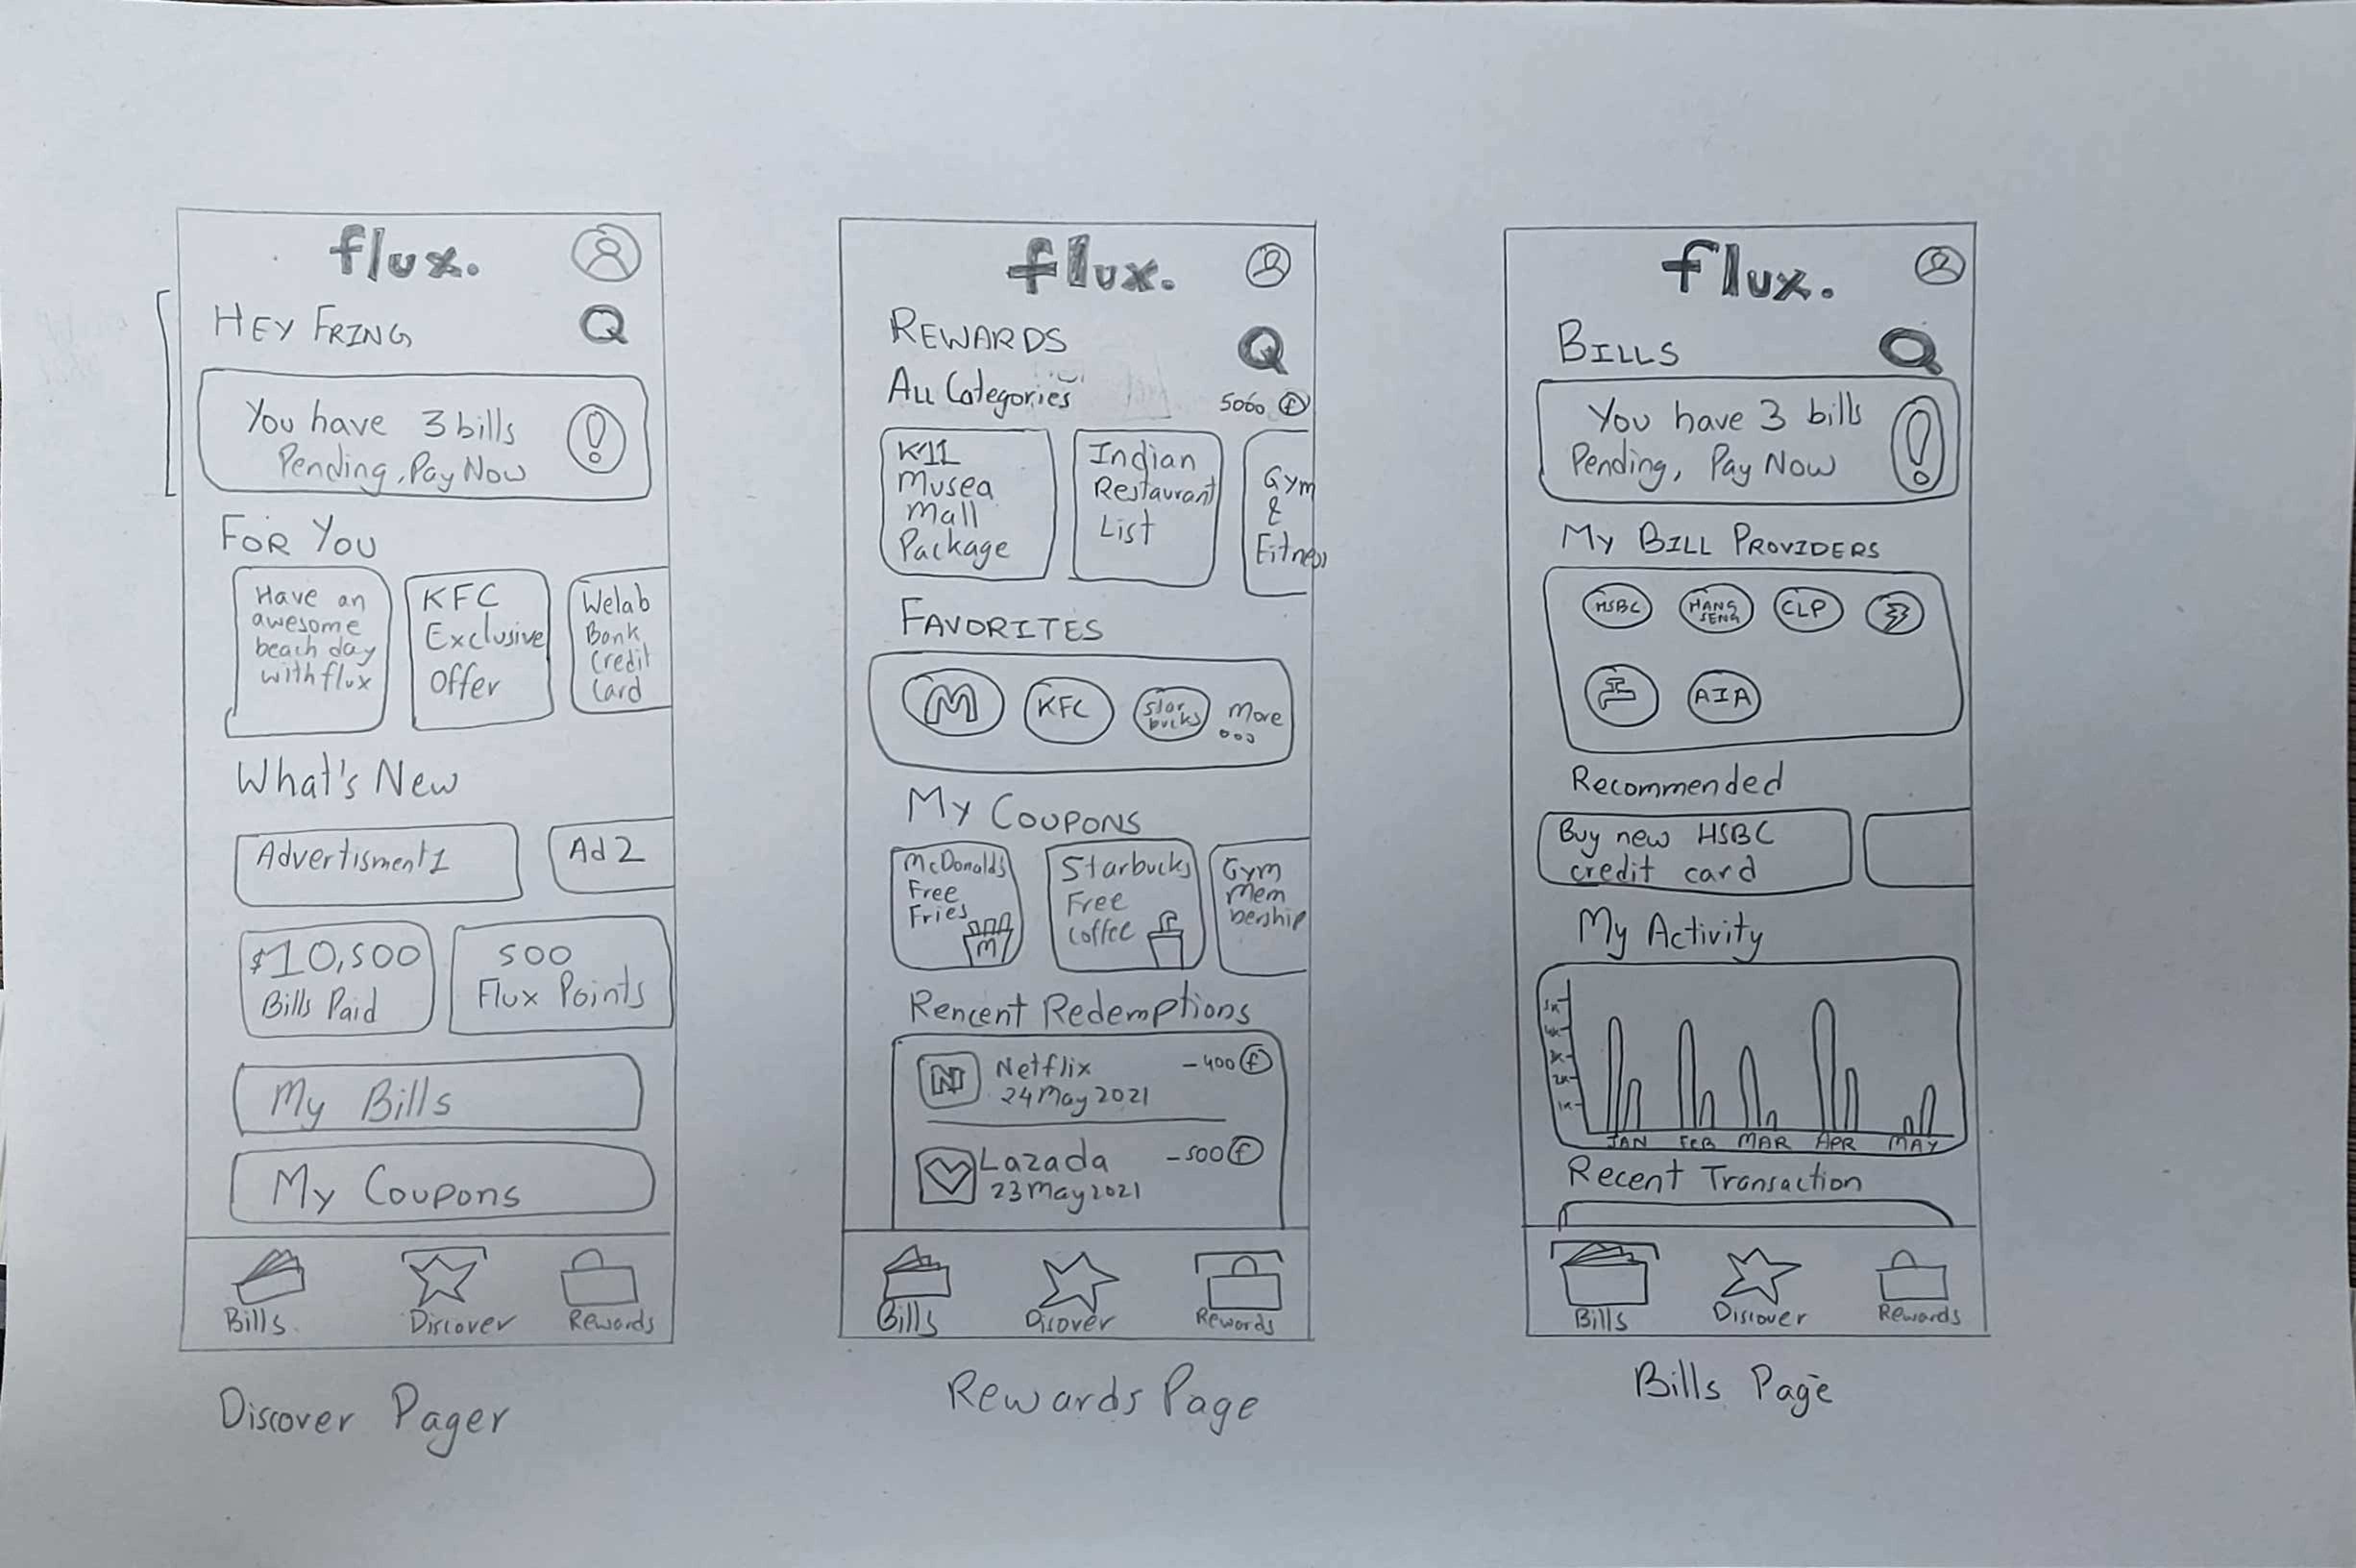 flux.
HEY FRING
You have 3 bills
Pending, Pay Now
FOR YOU
Have an
awesome
beach day
with flux
KFC
Exclusive
Offer
Welab
Bank
Credit
Card
What's New
Advertisment 1
Ad 2
$10,500
Bills Paid
500
Flux Points
My Bills
My Coupons
Bills
Discover
Rewards
Discover Pager
flux.
REWARDS
All Categories
5060 f
K11
Musea
Mall
Package
Indian
Restaurant
List
Gym
&
Fitness
FAVORITES
M
KFC
Star
bucks
More
MY COUPONS
McDonalds
Free
Fries
M
Starbucks
Free
Coffee
Gym
Mem
bership
Rencent Redemptions
N
Netflix
-400 f
24 May 2021
Lazada
-500 f
23 May 2021
Bills
Discover
Rewards
Rewards Page
flux.
BILLS
You have 3 bills
Pending, Pay Now
MY BILL PROVIDERS
HSBC
HANG
SENG
CLP
AIA
Recommended
Buy new HSBC
credit card
My Activity
5K
4K
3K
2K
1K
JAN FEB MAR APR MAY
Recent Transaction
Bills
Discover
Rewards
Bills Page